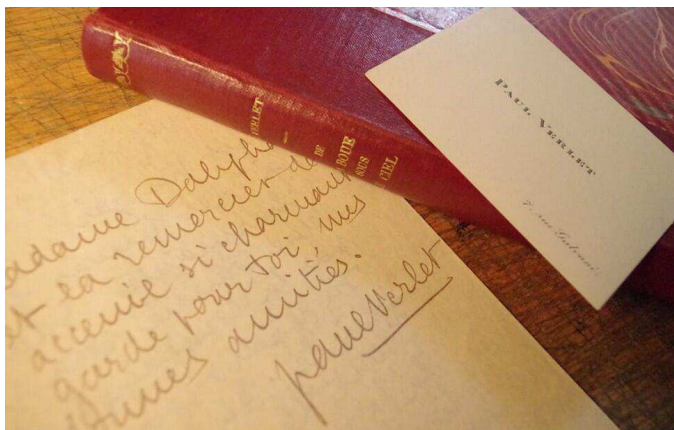 VERLET
DE
BOUE
SOUS
CIEL
PAUL VERLET
7, rue Galvani
adame Dalyha
et la remercier de
accueil si charmant
garde pour toi, mes
onnes amitiés.
paul Verlet